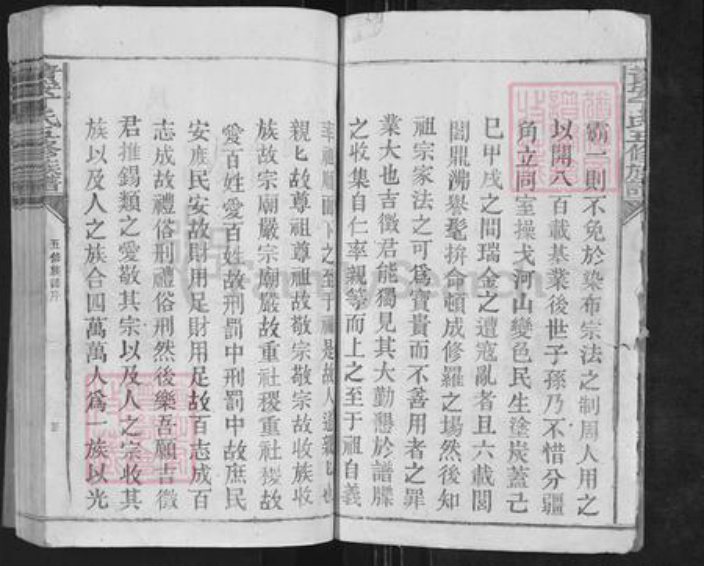 霸一則不免於染布宗法之制周人用之
以開八百載基業後世子孫乃不惜分疆
角立同室操戈河山變色民生塗炭蓋己
巳甲戌之間瑞金之遭寇亂者且六載閭
閻鼎沸譽髦拚命頓成修羅之場然後知
祖宗家法之可為寶貴而不善用者之罪
業大也吉徵君能獨見其大勤懇於譜牒
之收集自仁率親等而上之至于祖自義
率祖順而下之至于禰是故人道親親也
親親故尊祖尊祖故敬宗敬宗故收族收
族故宗廟嚴宗廟嚴故重社稷重社稷故
愛百姓愛百姓故刑罰中刑罰中故庶民
安庶民安故財用足財用足故百志成百
志成故禮俗刑禮俗刑然後樂吾願吉徵
君推錫類之愛敬其宗以及人之宗收其
族以及人之族合四萬萬人為一族以光
氏五修族譜
五修族譜序
FamilySearch